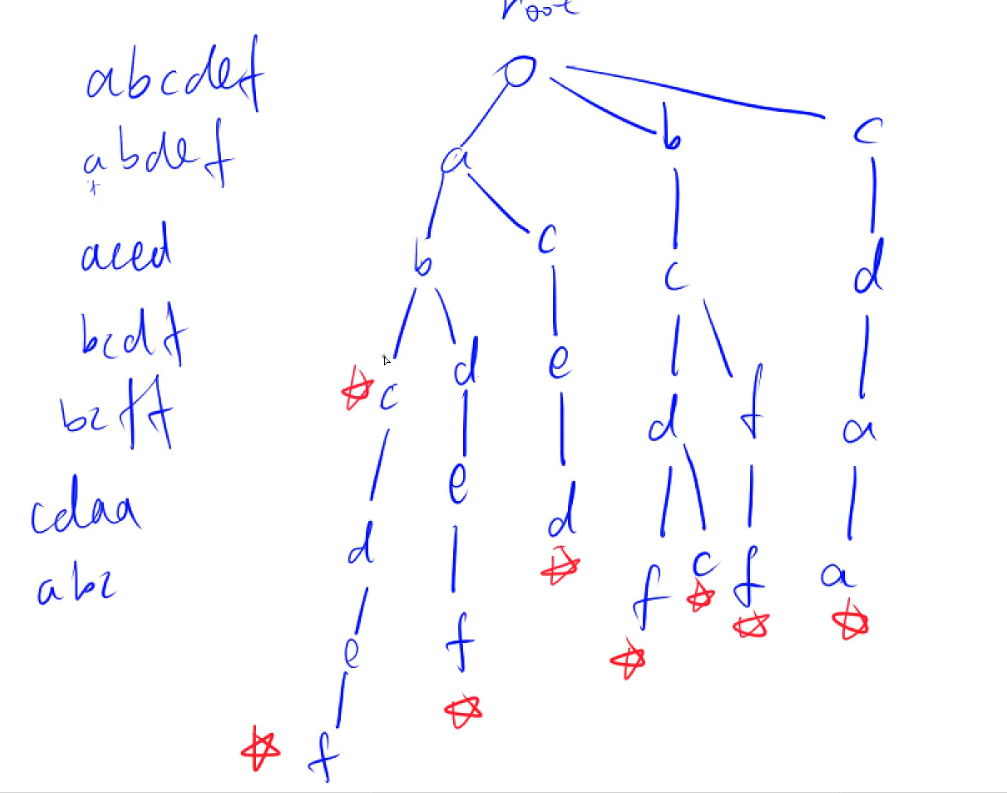 root
abcdef
abdef
a b c
aced
b c e
bcdf
c d d
bcff
e d c a
cdaa
e d f a
abc
d f c f a
e f
f